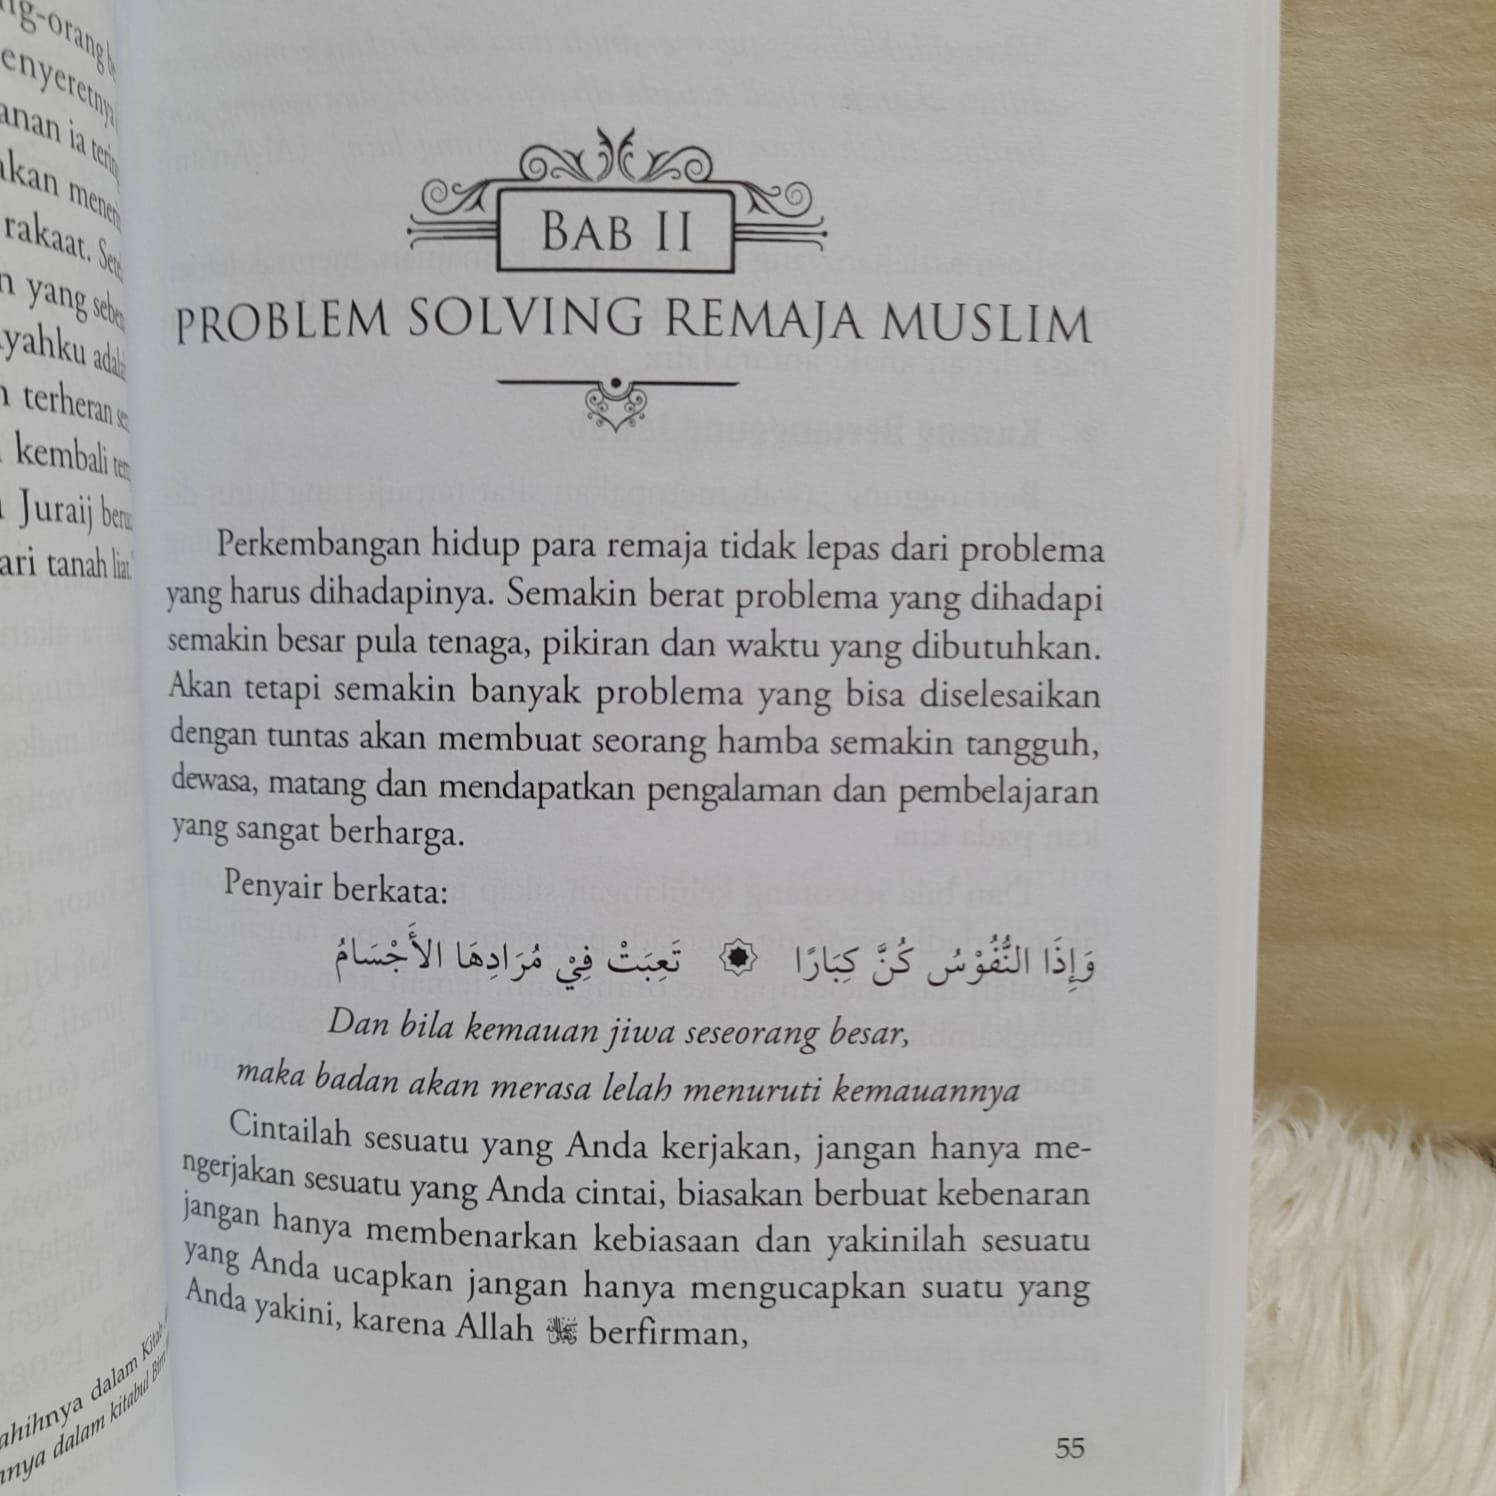 enyeretnya
anan ia
akan
rakaat.
yang
adalah
terheran
kembali
Juraij
ari tanah liat.
ahihnya dalam Kitab
nnya dalam kitabul
BAB II
PROBLEM SOLVING REMAJA MUSLIM
Perkembangan hidup para remaja tidak lepas dari problema
yang harus dihadapinya. Semakin berat problema yang dihadapi
semakin besar pula tenaga, pikiran dan waktu yang dibutuhkan.
Akan tetapi semakin banyak problema yang bisa diselesaikan
dengan tuntas akan membuat seorang hamba semakin tangguh,
dewasa, matang dan mendapatkan pengalaman dan pembelajaran
yang sangat berharga.
Penyair berkata:
وَإِذَا النُّفُوْسُ كُنَّ كِبَارًا ۞ تَعِبَتْ فِيْ مُرَادِهَا الأَجْسَامُ
Dan bila kemauan jiwa seseorang besar,
maka badan akan merasa lelah menuruti kemauannya
Cintailah sesuatu yang Anda kerjakan, jangan hanya me-
ngerjakan sesuatu yang Anda cintai, biasakan berbuat kebenaran
jangan hanya membenarkan kebiasaan dan yakinilah sesuatu
yang Anda ucapkan jangan hanya mengucapkan suatu yang
Anda yakini, karena Allah ﷻ berfirman,
55